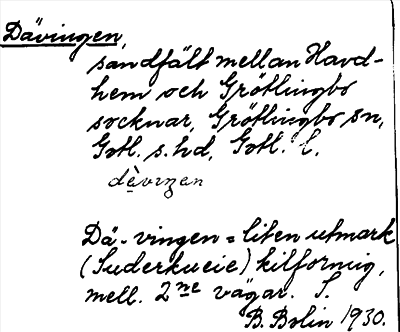 Dävingen,
sandfält mellan Havd-
hem och Grötlingbo
socknar, Grötlingbo sn,
Gotl. s. hd, Gotl. l.
dèvıŋen
Dä-vingen = liten utmark
(Suderkueie) kilformig,
mell. 2ne vägar. S.
B. Bolin 1930.